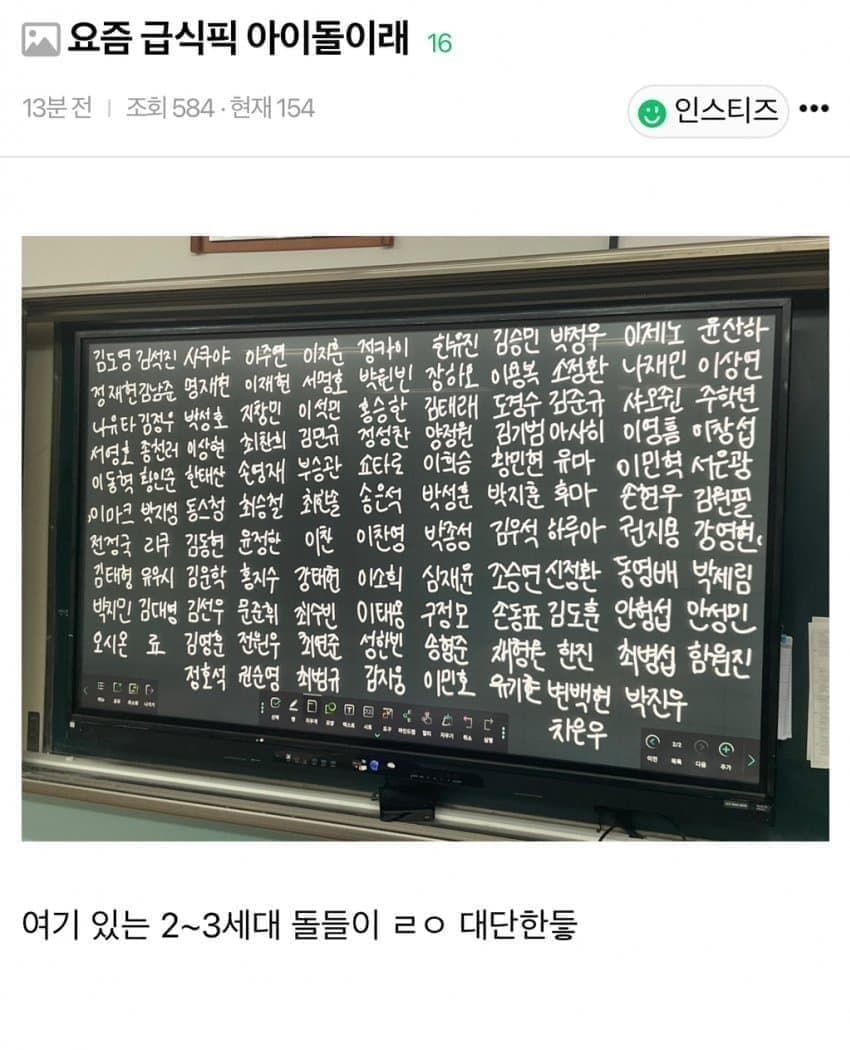 요즘 급식픽 아이돌이래 16
13분 전 | 조회 584 · 현재 154
인스티즈
김도영 김석진 사쿠야 이주연 이지훈 정카이 한유진 김승민 박정우 이제노 윤산하
정재현 김남준 명재현 이재현 서명호 박원빈 장하오 이용복 소정환 나재민 이상연
나유타 김정우 박성호 지창민 이석민 홍승한 김태래 도경수 김준규 샤오쥔 주학년
서영호 종천러 이상현 최찬희 김민규 정성찬 양정원 김기범 아사히 이영흠 이창섭
이동혁 황인준 한태산 손영재 부승관 쇼타로 이희승 황민현 유마 이민혁 서은광
이마크 박지성 동스청 최승철 최한솔 송은석 박성훈 박지훈 후마 손현우 김원필
전정국 리쿠 김동현 윤정한 이찬 이찬영 박종성 김우석 하루아 권지용 강영현
김태형 유우시 김운학 홍지수 강태현 이소희 심재윤 조승연 신정환 동영배 박제림
박지민 김대영 김선우 문준휘 최수빈 이태용 구정모 손동표 김도훈 안형섭 안성민
오시온 료 김영훈 전원우 최연준 성한빈 송형준 한진 최병섭 함원진
정호석 권순영 최범규 김지웅 이민호 유기현 변백현 박진우
차은우
이전 2/2 목록 다음 추가
여기 있는 2~3세대 돌들이 ㄹㅇ 대단한듷